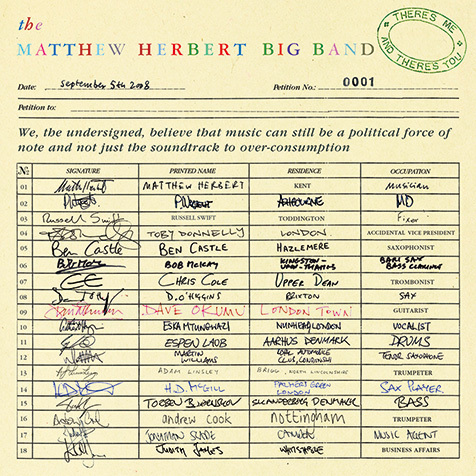 the
MATTHEW HERBERT BIG BAND
THERE'S ME
AND THERE'S YOU
Date: September 5th 2008 Petition No.: 0001
Petition to:
We, the undersigned, believe that music can still be a political force of
note and not just the soundtrack to over-consumption
No. SIGNATURE PRINTED NAME RESIDENCE OCCUPATION
01 MATTHEW HERBERT KENT MUSICIAN
02 P. WRIGHT ASHBOURNE MD
03 Russell Swift RUSSELL SWIFT TODDINGTON Fixer
04 TOBY DONNELLY LONDON. ACCIDENTAL VICE PRESIDENT
05 Ben Castle BEN CASTLE HAZLEMERE SAXOPHONIST
06 BOB McKAY KINGSTON-UPON-THAMES BARI SAX BASS CLARINET
07 CHRIS COLE UPPER DEAN TROMBONIST
08 D. O'HIGGINS BRIXTON SAX
09 DAVE OKUMU LONDON TOWN GUITARIST
10 ESKA MTUNGWAZI NUNHEAD LONDON VOCALIST
11 ESPEN LAUB AARHUS DENMARK DRUMS
12 MARTIN WILLIAMS TENOR SAXOPHONE
13 ADAM LINSLEY BRIGG, NORTH LINCOLNSHIRE TRUMPETER
14 H.D. McGILL PALMERS GREEN LONDON SAX PLAYER.
15 TORBEN BJØRNSKOV SKANDERBORG DENMARK BASS
16 andrew cook nottingham TRUMPETER
17 JONATHAN SLADE MUSIC AGENT
18 JUDITH JAMES WHITSTABLE BUSINESS AFFAIRS